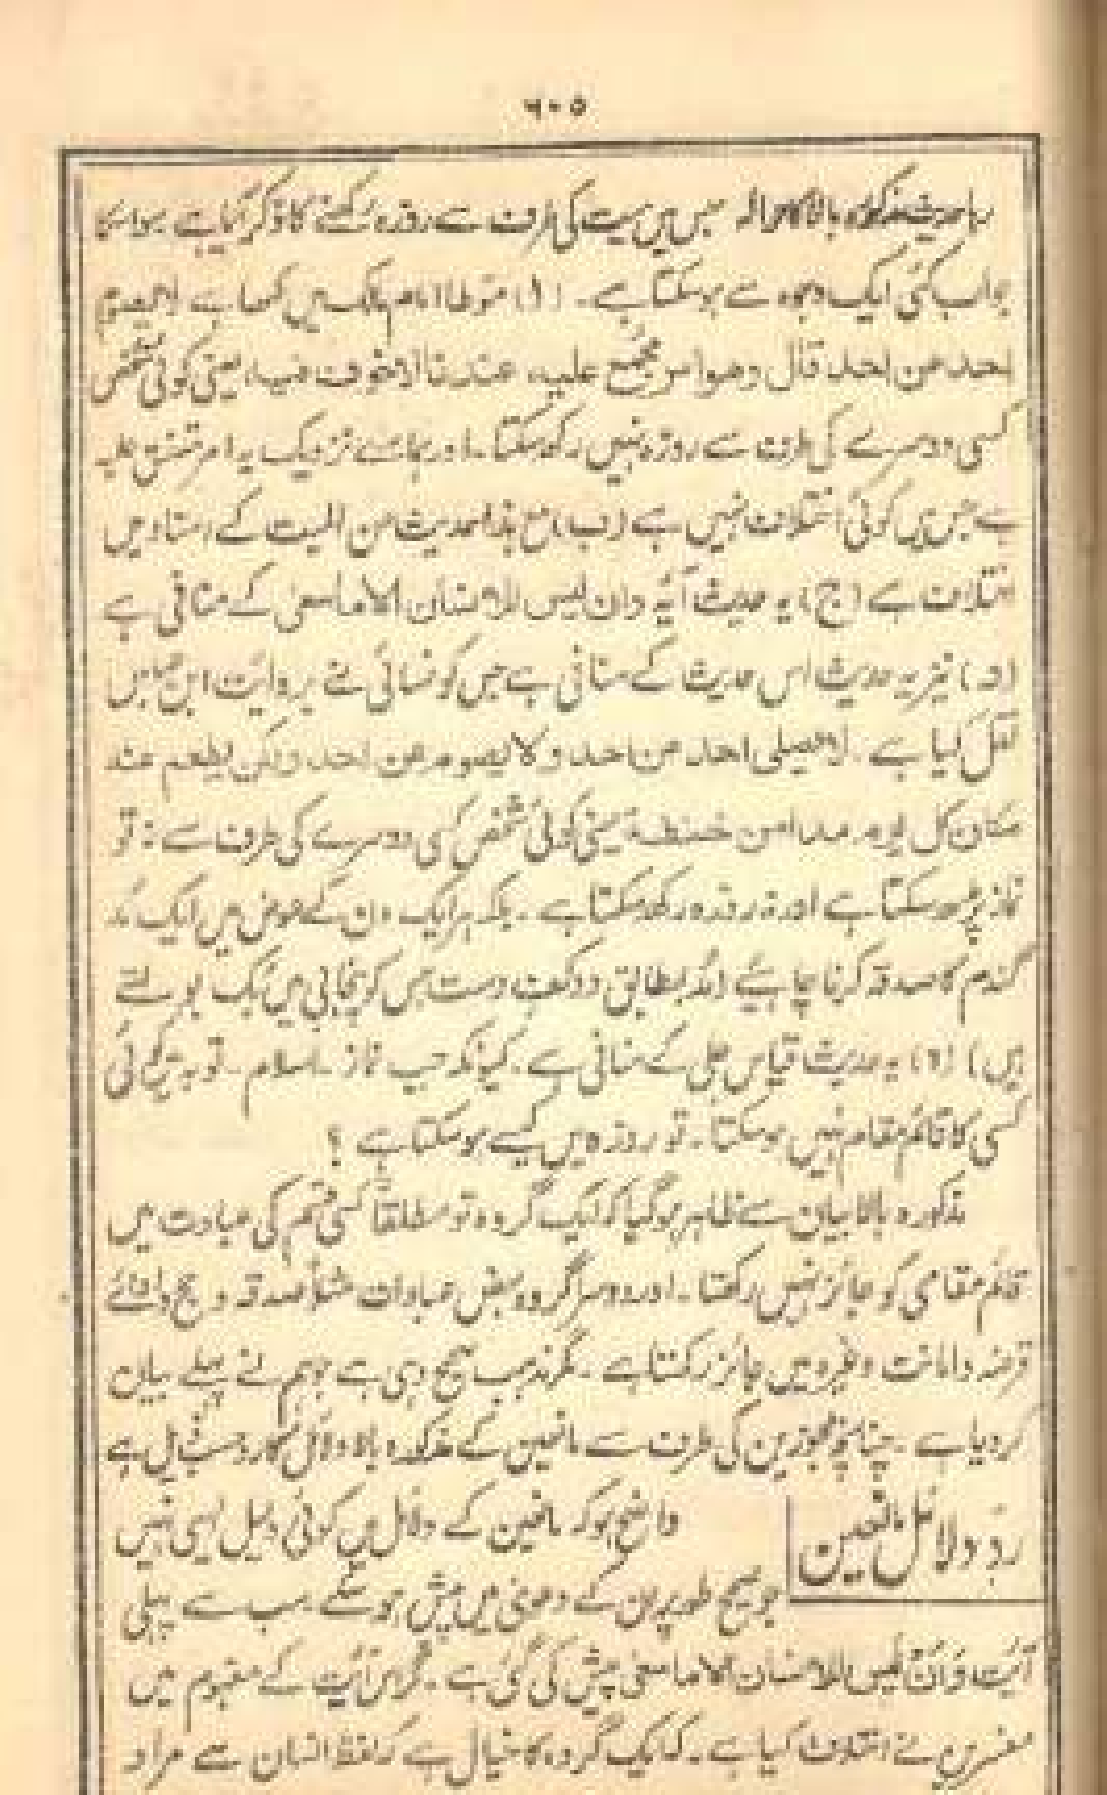 ۶۰۵
رہا حدیث مذکورہ بالا کا حوالہ جس میں میت کی طرف سے روزہ رکھنے کا ذکر آیا ہے سو اسکا
جواب کئی ایک وجوہ سے ہو سکتا ہے ۔ (ا) موطا امام مالک میں لکھا ہے لا یصوم
احد عن احد قال وھو امر مجمع علیہ عندنا لا خوف فیہ یعنی کوئی شخص
کسی دوسرے کی طرف سے روزہ نہیں رکھ سکتا ۔ اور ہمارے نزدیک یہ امر متفق علیہ
ہے جس میں کوئی اختلاف نہیں ہے (ب) مع ہذا حدیث عن المیت کے اسناد میں
اختلاف ہے (ج) یہ حدیث آیہ وان لیس للانسان الا ما سعی کے منافی ہے
(د) نیز یہ حدیث اس حدیث کے منافی ہے جس کو نسائی نے بروایت ابن عباس
نقل کیا ہے ۔ لا یصلی احد عن احد و لا یصوم عن احد ولکن یطعم عنہ
مکان کل یوم مدا من حنطة یعنی کوئی شخص کسی دوسرے کی طرف سے نہ تو
نماز پڑھ سکتا ہے اور نہ روزہ رکھ سکتا ہے ۔ بلکہ ہر ایک دن کے عوض میں ایک مد
گندم کا صدقہ کرنا چاہیے (مد بمطابق دو کف دست جس کو پنجابی میں بک بولتے
ہیں) (ہ) یہ حدیث قیاس جلی کے منافی ہے ۔ کیونکہ جب نماز ۔ اسلام ۔ توبہ میں کوئی
کسی کا قائم مقام نہیں ہو سکتا ۔ تو روزہ میں کیسے ہو سکتا ہے ؟
مذکورہ بالا بیان سے ظاہر ہو گیا کہ ایک گروہ تو مطلقاً کسی قسم کی عبادت میں
قائم مقامی کو جائز نہیں رکھتا ۔ اور دوسرا گروہ بعض عبادات مثلاً صدقہ و حج و ادائے
قرضہ و امانت وغیرہ میں جائز رکھتا ہے ۔ مگر مذہب صحیح وہی ہے جو ہم نے پہلے بیان
کر دیا ہے ۔ چنانچہ مجوزین کی طرف سے مانعین کے مذکورہ بالا دلائل کا رد حسب ذیل ہے
رد دلائل مانعین
واضح ہو کہ مانعین کے دلائل میں کوئی دلیل ایسی نہیں
جو صحیح طور پر ان کے دعویٰ میں پیش ہو سکے ۔ سب سے پہلی
آیت وَاَنْ لیس للانسان الا ما سعی پیش کی گئی ہے ۔ مگر اس آیت کے مفہوم میں
مفسرین نے اختلاف کیا ہے ۔ کہ ایک گروہ کا خیال ہے کہ لفظ انسان سے مراد